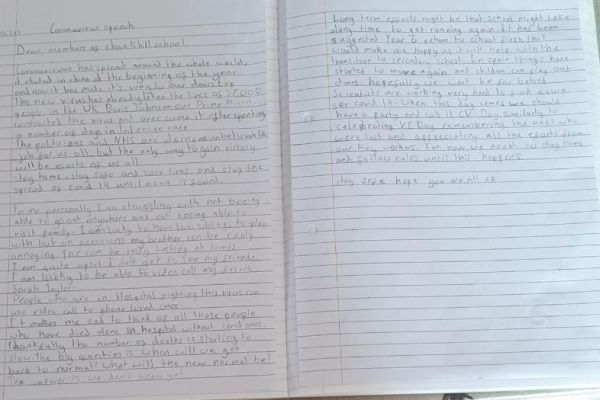 Coronavirus speech
Dear members of shankhill school
Coronavirus has spread around the whole world,
it stated in china at the beginning of the year
and now it has make it's way to our doorstep
this new virus has already taken the lives of
people in the UK Boris Johnson our Prime
contracted the virus and over came it after spending
a number of days in intensive care
The politicians and NHS are doing an unbelievable
job for us all, but the only way to gain victory
will be efforts of us all
stay home, stay safe and save lives and stop the
spread of covid 19 until a cure is found.
for me personally I am struggling with not beeing
able to go out anywhere and not beeing able to
visit family. I am lucky to have two siblings to play
with but on occasions my brother can be really
annoying this can be really testing at times
I am quite upset I don't get to see my friends
I am lucky to be able to video call my friend
Sarah Taylor.
People who are in Hospital fighting this virus can
use video call to phone loved ones
It makes me sad to think of all those people
who have died alone in hospital without loved ones.
Thankfully the number of deaths is starting to
slow. The big question is when will we get
back to normal? What will the new normal be?
The answer is we don't know yet
Long term effects might be that school might take
along time to get running again. it has been
suggested Year 6 return to school first this
would make me happy as it will help with the
transition to secondary school. In spain things have
started to move again and children can play out
doors. hopefully we wont be far behind
Scientists are working very hard to find a cure
for covid 19. When this day comes we should
have a party and call it CV Day similarly to
celebrating VE Day remembering the ones who
were lost and appreciating all the efforts from
our key workers. For now we need to stay home
and follow rules until this happens
stay safe hope you are all ok